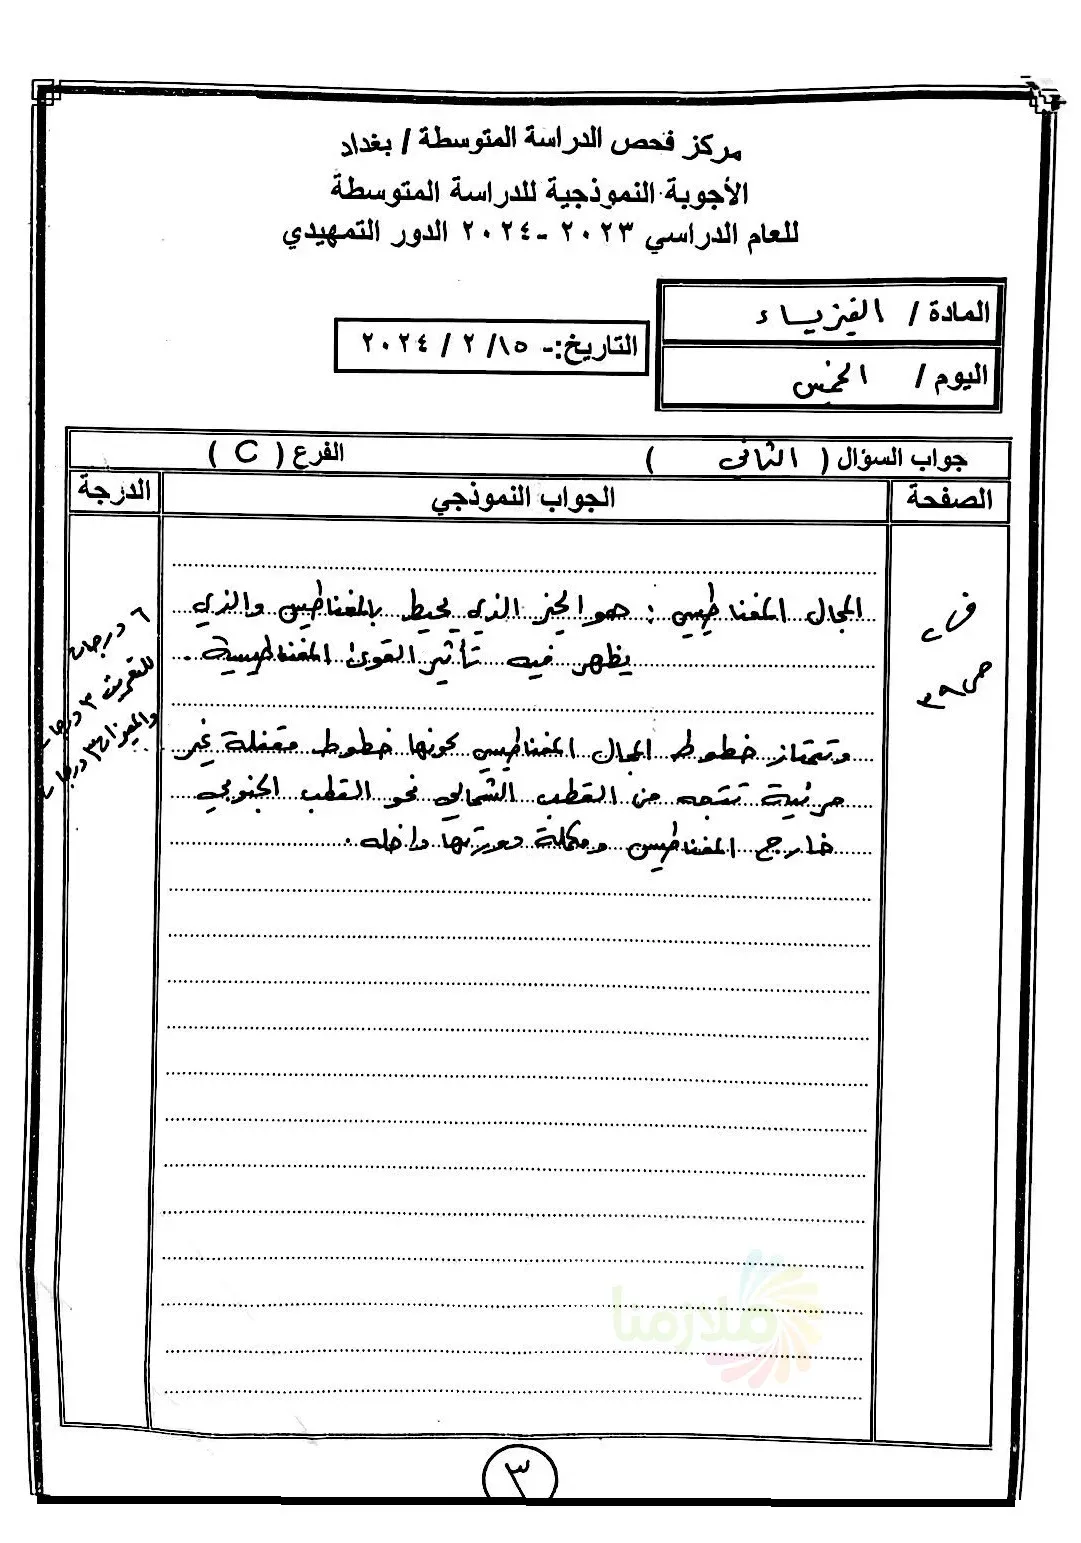 مركز فحص الدراسة المتوسطة / بغداد
الأجوبة النموذجية للدراسة المتوسطة
للعام الدراسي ٢٠٢٣ -٢٠٢٤ الدور التمهيدي
المادة / الفيزياء
اليوم / الخميس
التاريخ:- ١٥/ ٢ / ٢٠٢٤
جواب السؤال ( الثاني ) الفرع ( C )
الصفحة الجواب النموذجي الدرجة
ف٢
ص٣٩
المجال المغناطيسي : هو الحيز الذي يحيط بالمغناطيس والذي
يظهر فيه تأثير القوى المغناطيسية .
وتمتاز خطوط المجال المغناطيسي بكونها خطوط مقفلة غير
مرئية تتجه من القطب الشمالي نحو القطب الجنوبي
خارج المغناطيس ومكملة دورتها داخله .
٦ درجات
للتعريف ٣ درجات
والميزات ٣ درجات
ملازمنا
٣